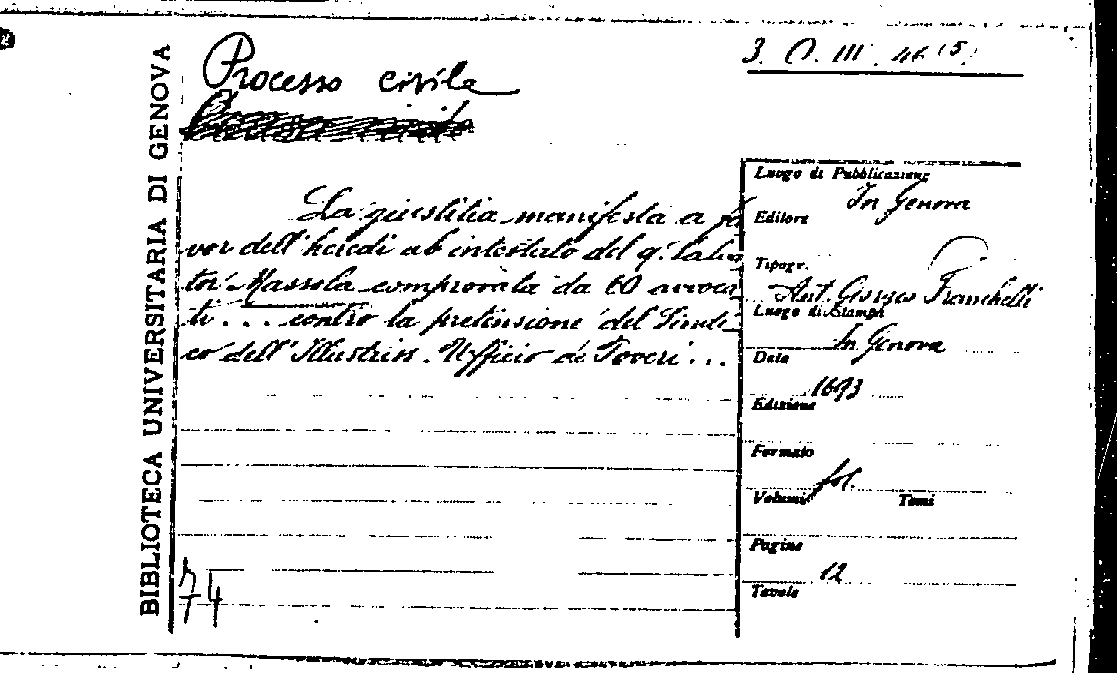 BIBLIOTECA UNIVERSITARIA DI GENOVA
3. O. III. 46 (5)
Processo civile
La giustitia manifesta a fa
vor dell'heredi ab intestato del q. Salva
tor Massola comprovata da 60 avvoca
ti... contro la pretensione del Sindi
co dell'Illustriss. Ufficio de Poveri...
74
Luogo di Pubblicazione
In Genova
Editore
Tipogr.
Ant. Giorgio Franchelli
Luogo di Stampa
In Genova
Data
1693
Edizione
Formato
fol.
Volumi Tomi
Pagine
12
Tavole